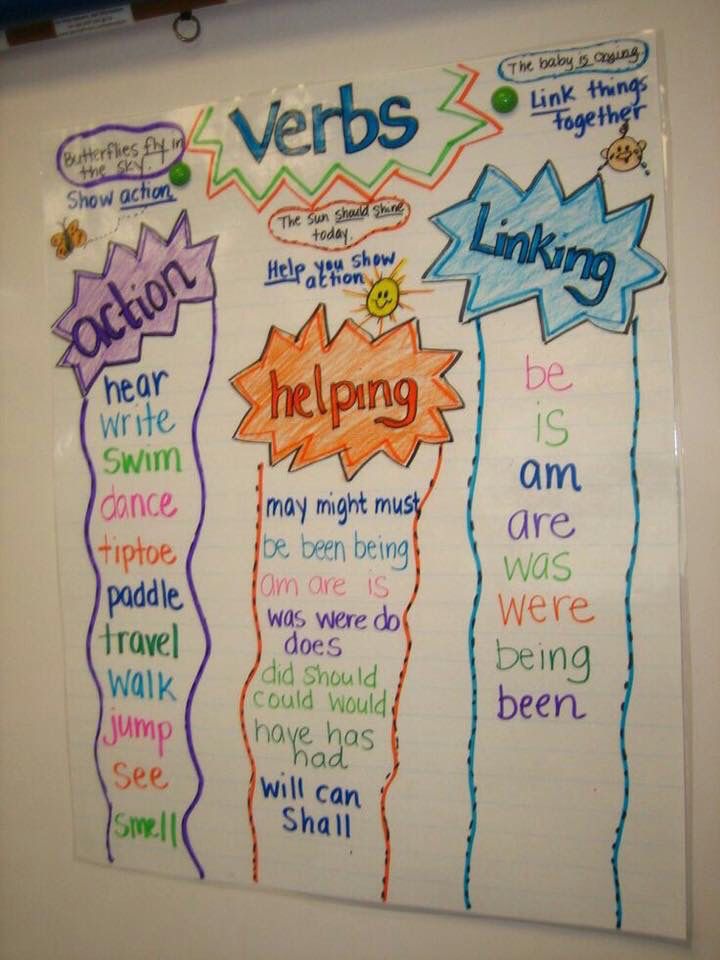 Verbs
Butterflies fly in
the sky.
Show action
action
hear
write
swim
dance
tiptoe
paddle
travel
walk
jump
see
smell
The sun should shine
today.
Help you show
action
helping
may might must
be been being
am are is
was were do
does
did should
could would
have has
had
will can
Shall
The baby is crying.
Link things
together
Linking
be
is
am
are
was
were
being
been